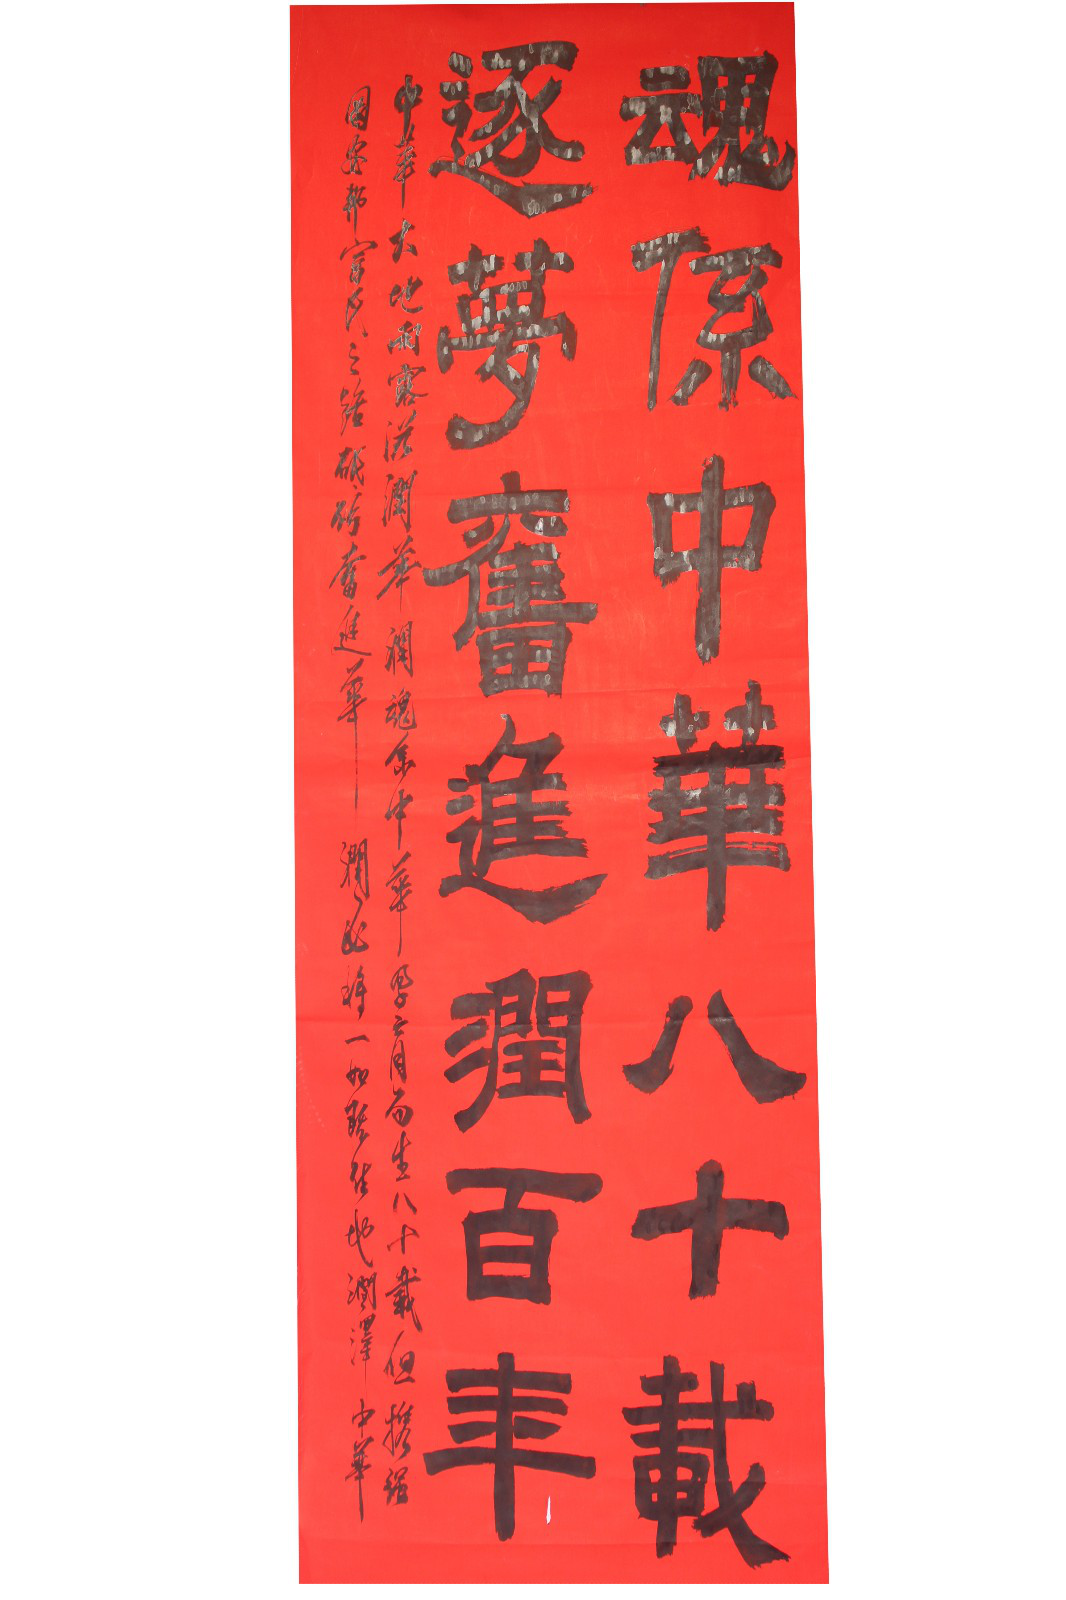 魂係中華八十載
逐夢奮進潤百年
中華大地雨露滋潤華潤魂系中華 而生八十載但携強
國富民之 砥礪奮進華潤必將一如既往地潤澤中華